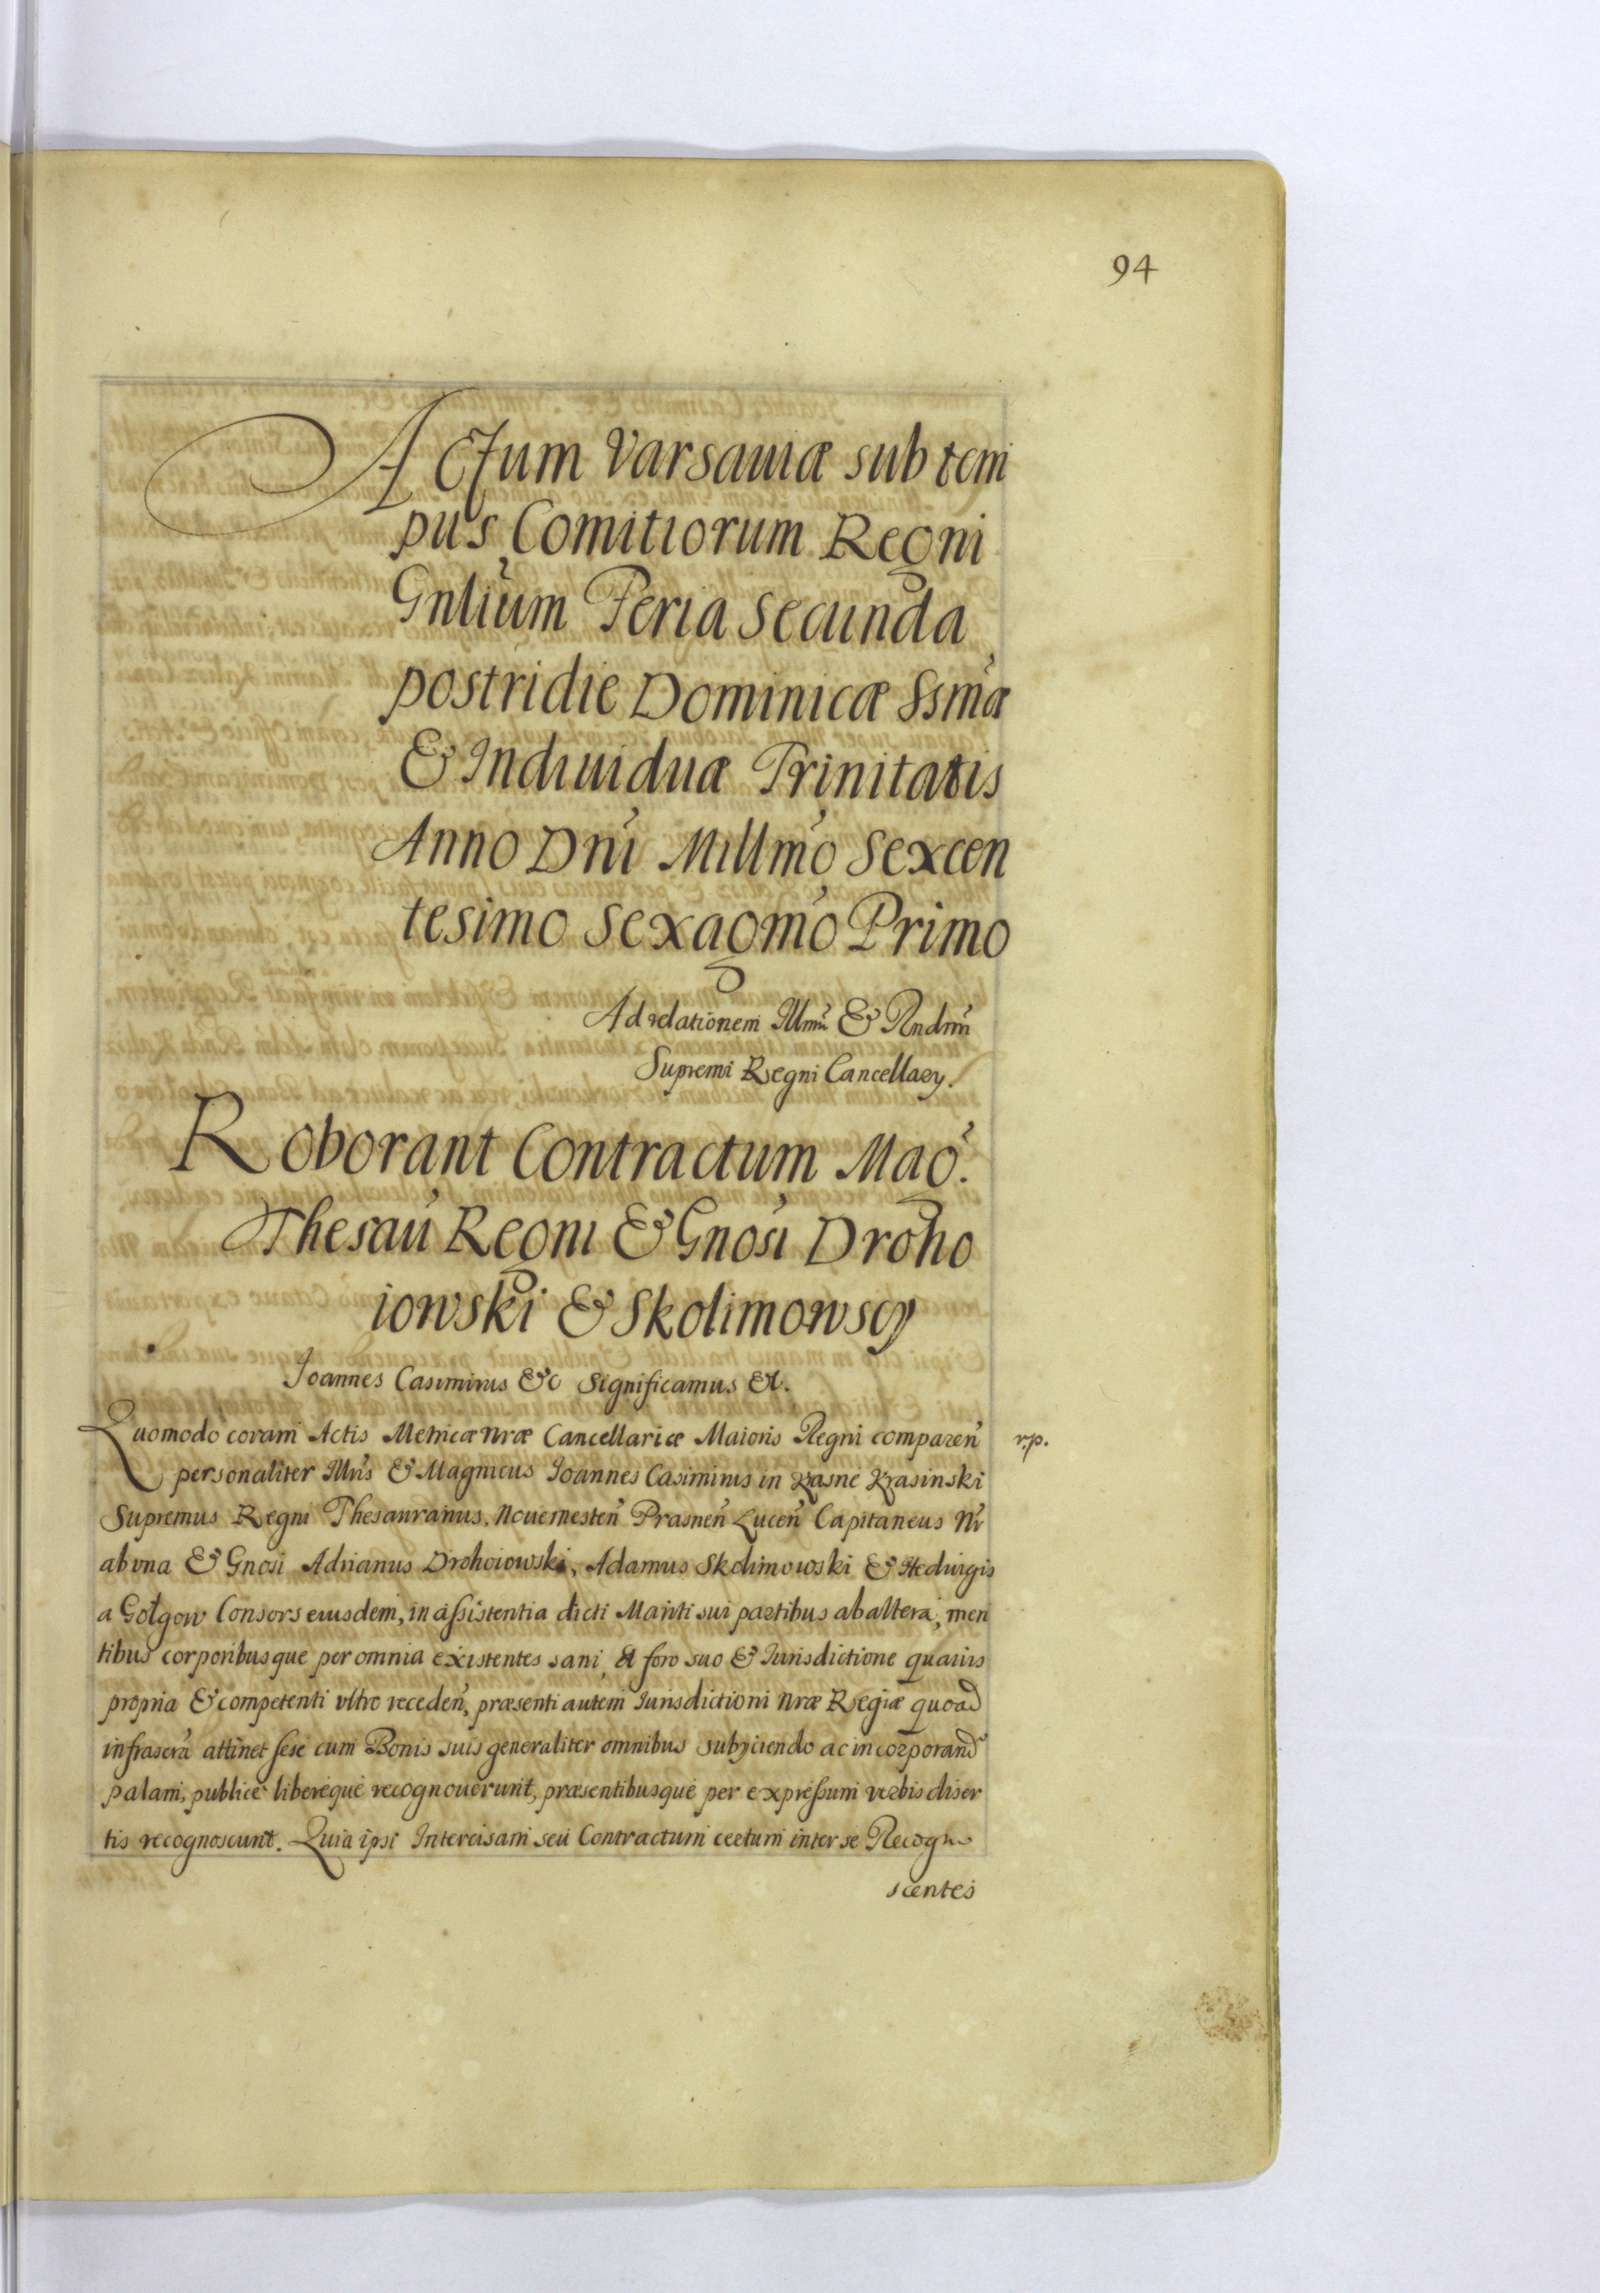 94
Actum Varsauiæ sub tem
pus Comitiorum Regni
Gnlium Feria Secunda
postridie Dominicæ Ssmæ
& Indiuiduæ Trinitatis
Anno Dni Millmo Sexcen
tesimo Sexagmo Primo
Ad relationem Illmi & Rndmi
Supremi Regni Cancellary.
Roborant Contractum Mag.
Thesau Regni & Gnosi Droho
iowski & Skolimowscy
Ioannes Casimirus &c Significamus &c.
Quomodo coram Actis Metricæ nræ Cancellariæ Maioris Regni comparen r.p.
personaliter Illris & Magnicus Ioannes Casimirus in Krasne Krasinski
Supremus Regni Thesaurarius. Nouemesten Prasnen Lucen Capitaneus Nr
ab vna & Gnosi Adrianus Drohoiowski, Adamus Skolimowski & Heduigis
a Gołgow Consors eiusdem, in assistentia dicti Mariti sui partibus ab altera, men
tibus corporibusque per omnia existentes sani, A foro suo & Iurisdictione quauis
propria & competenti vltro receden, præsenti autem Iurisdictioni nræ Regiæ quoad
infrascra attinet sese cum Bonis suis generaliter omnibus subijciendo ac incorporand
palam, publice libereque recognouerunt, præsentibusque per expressum verbis diser
tis recognoscunt. Quia ipsi Intercisam seu Contractum certum inter se Recogno
scentes